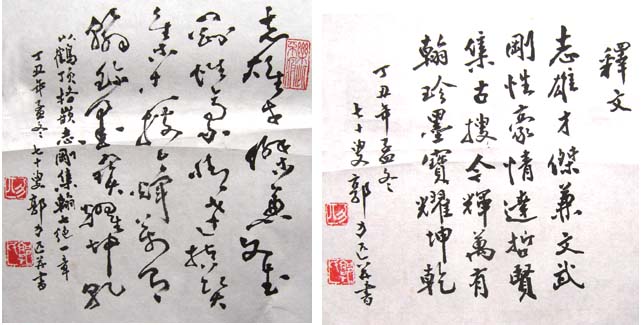 志雄才傑兼文武
剛性豪情達哲賢
集古搜今輝萬有
翰珍墨寶耀坤乾
以鶴頂格嵌志剛集翰七絕一章
丁丑年孟冬七十叟郭并書
釋文
志雄才傑兼文武
剛性豪情達哲賢
集古搜今輝萬有
翰珍墨寶耀坤乾
丁丑年孟冬
七十叟郭并書